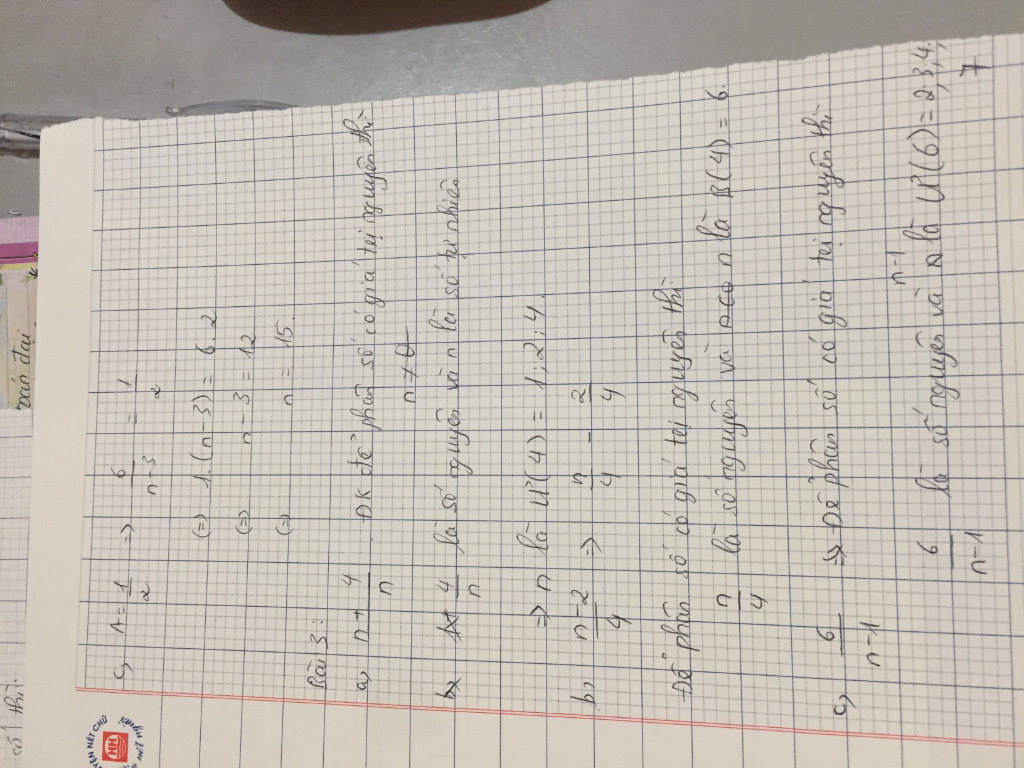 c, A = 1/2 => 6/n-3 = 1/2
(=) 1.(n-3) = 6.2
(=) n-3 = 12
(=) n = 15.
Bài 3:
a, n + 4/n . ĐK để phân số có giá trị nguyên thì
n ≠ 0
4/n là số nguyên và n là số tự nhiên
=> n là Ư(4) = 1;2;4.
b, n-2/4 => n/4 - 2/4
Để phân số có giá trị nguyên thì
n/4 là số nguyên và n là B(4) = 6.
c, 6/n-1 => Để phân số có giá trị nguyên thì
6/n-1 là số nguyên và n-1 là Ư(6) = 2,3,4,
7
toán đại
số 1 thì.
LUYỆN NÉT CHỮ